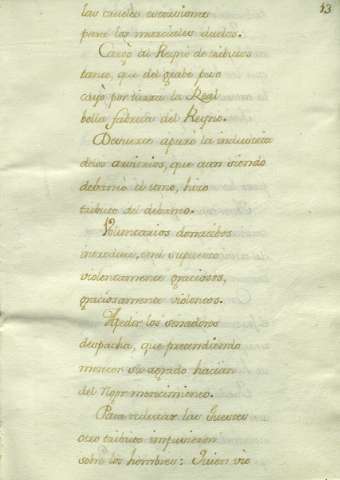 13
las crueles
para los marciales duelos.
Cargò al Reyno de tributos
tanto, que del grabe peso
cayò por tierra la Real
bella fabrica del Reyno.
apurò la industria
de los arvitrios, que aun siendo
el uno, hizo
tributo del
Voluntarios donativos
introduce, en el supuesto
violentamente graciosos,
graciosamente violentos.
A pedir los senadores
despacha, que pretendiendo
merecer su agrado, hacian
del rigor merecimiento.
Para reclutar las Fuerzas
otro tributo impusieron
sobre los hombres: Quien vio